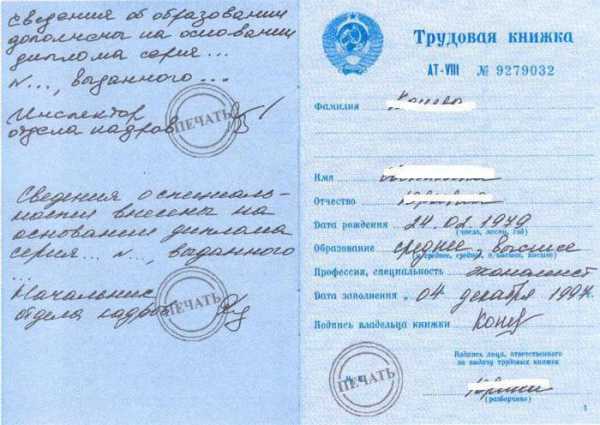 Сведения об образовании
дополнены на основании
диплома серия...
№..., выданного...
Инспектор
отдела кадров
ПЕЧАТЬ
Сведения о специаль-
ности внесены на
основании диплома
серия... №..., выданного
...
Начальник
отдела кадров
ПЕЧАТЬ
Трудовая книжка
АТ-VIII № 9279032
Фамилия
Имя
Отчество
Дата рождения 24.02.1979
(число, месяц, год)
Образование среднее, высшее
Профессия, специальность экономист
Дата заполнения 04 декабря 1997.
Подпись владельца книжки
Подпись лица, ответственного
за выдачу трудовых книжек
М. п.
ПЕЧАТЬ
(разборчиво)
1